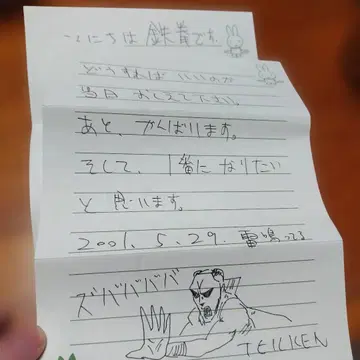 こんにちは 鉄拳です。
どうすれば いいのか
おしえて下さい。
あと、がんばります。
そして、1番に なりたい
と 思います。
2001. 5. 29. 雷鳴ってる
ズバババババ
TEKKEN